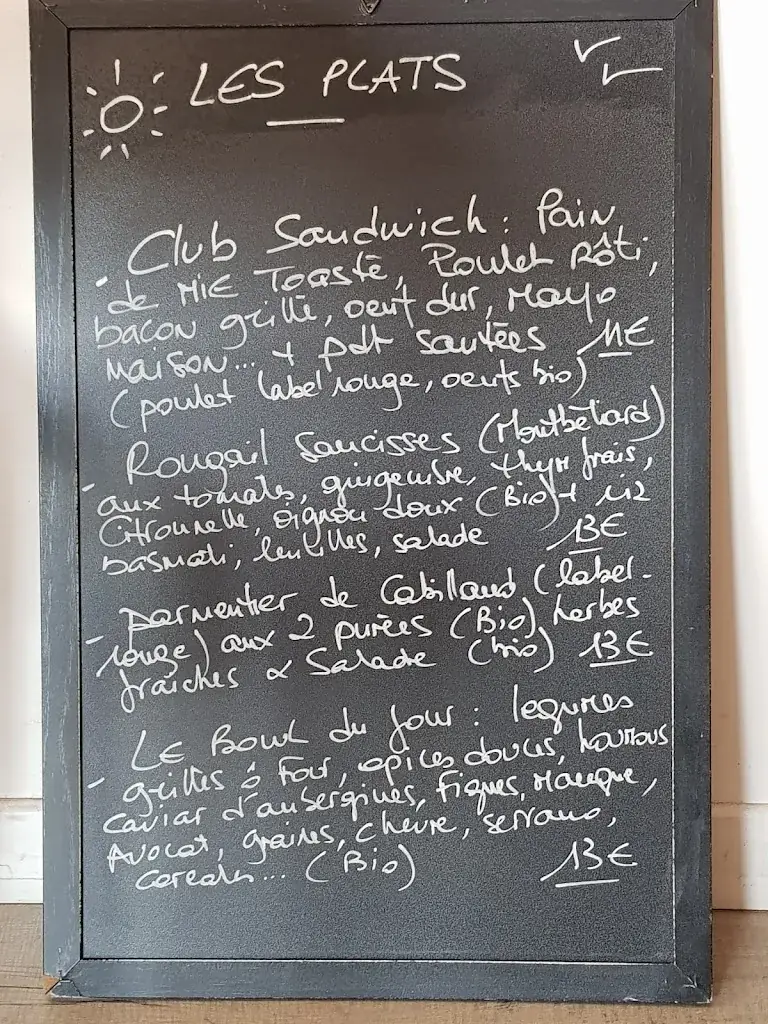 LES PLATS
- Club Sandwich : Pain
de Mie Toasté, Poulet Rôti,
bacon grillé, oeuf dur, Mayo
maison... + pdt sautées 11€
(poulet label rouge, oeufs bio)
- Rougail Saucisses (Montbéliard)
aux tomates, gingembre, thym frais,
Citronnelle, oignon doux (Bio) + riz
basmati, lentilles, salade 13€
- parmentier de Cabillaud (label-
rouge) aux 2 purées (Bio), herbes
fraîches & Salade (bio) 13€
- Le Bowl du Jour : legumes
grillés ô Four, epices douces, houmous
Caviar d'aubergines, Figues, Mangue,
Avocat, graines, chevre, serrano,
cereales... (Bio) 13€